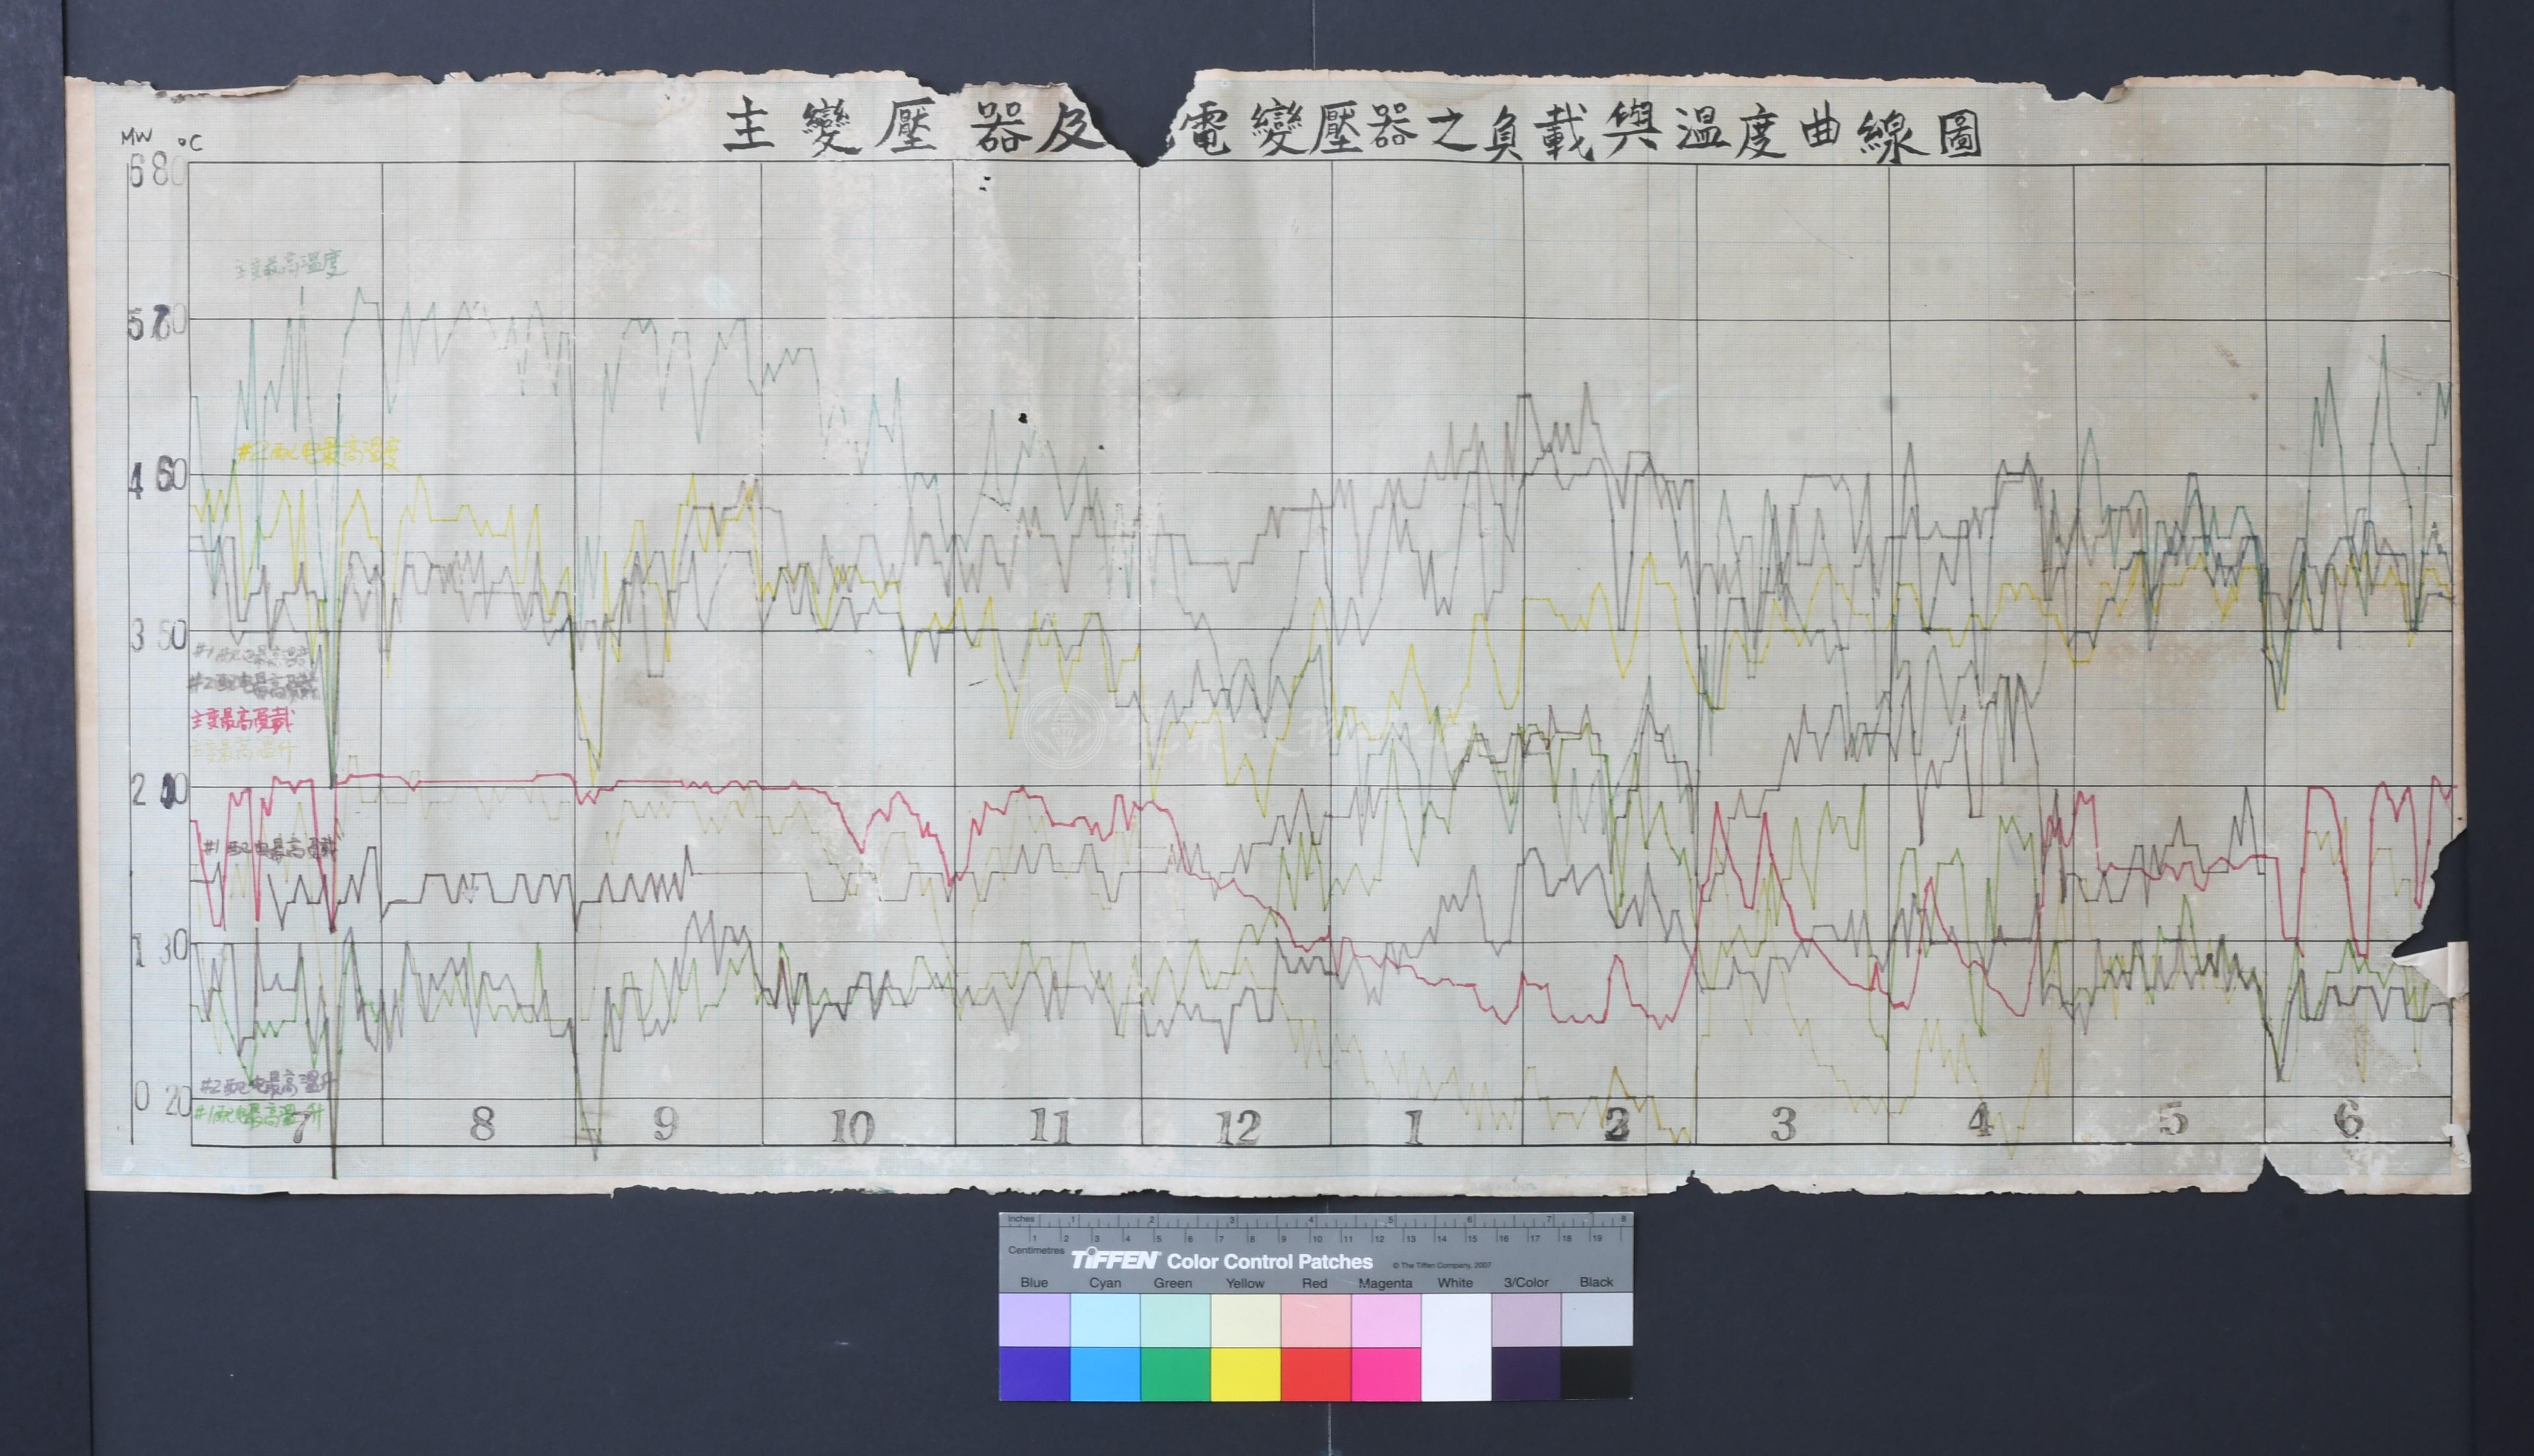 主變壓器及 電變壓器之負載與溫度曲線圖
MW °C
6 80
5 70
4 60
3 50
2 40
1 30
0 20
主變最高溫度
#2配电最高溫度
#1配电最高溫度
#2配电最高負載
主變最高負載
主變最高溫升
#1配电最高負載
#2配电最高溫升
#1配电最高溫升
7 8 9 10 11 12 1 2 3 4 5 6
Inches 1 2 3 4 5 6 7 8
1 2 3 4 5 6 7 8 9 10 11 12 13 14 15 16 17 18 19
Centimetres
TIFFEN Color Control Patches © The Tiffen Company, 2007
Blue Cyan Green Yellow Red Magenta White 3/Color Black